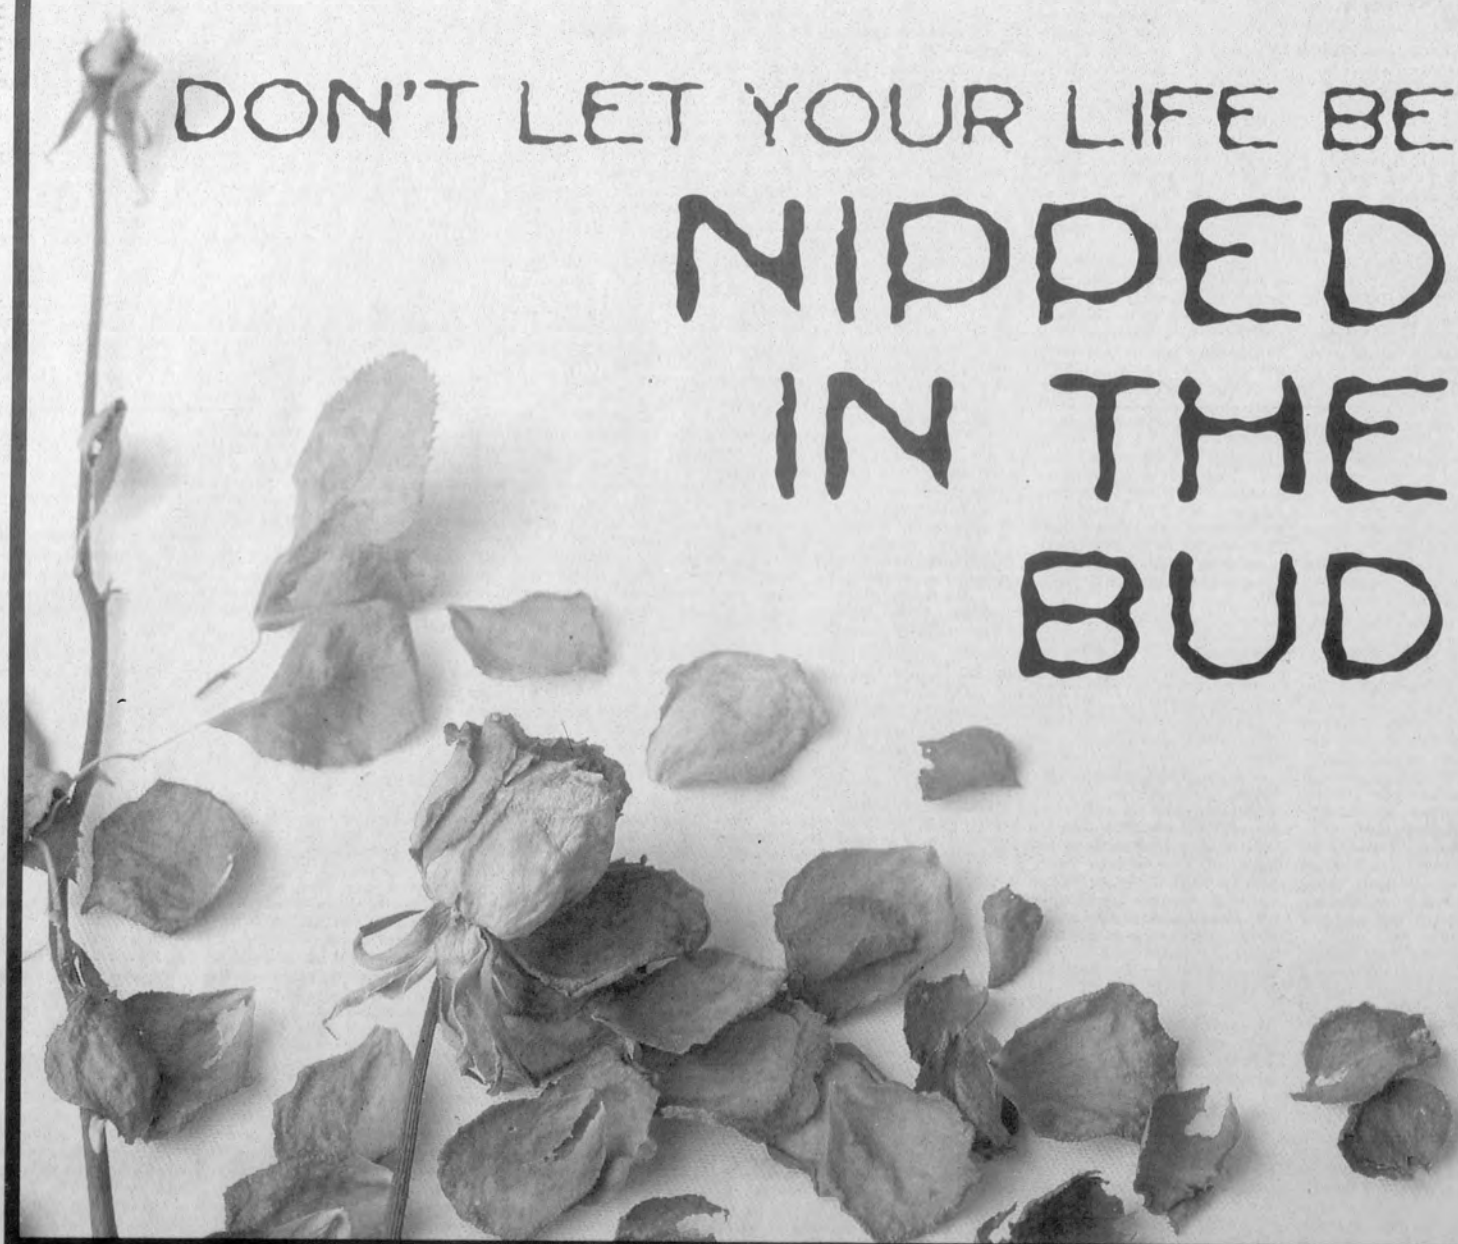 DON'T LET YOUR LIFE BE
NIPPED
IN THE
BUD